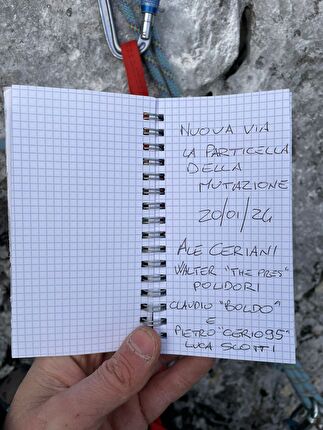 NUOVA VIA
LA PARTICELLA
DELLA
MUTAZIONE
20/01/24
ALE CERIANI
WALTER "THE PRES"
POLIDORI
CLAUDIO "BOLDO"
E
PIETRO "CERIO95"
LUCA SCOTTI